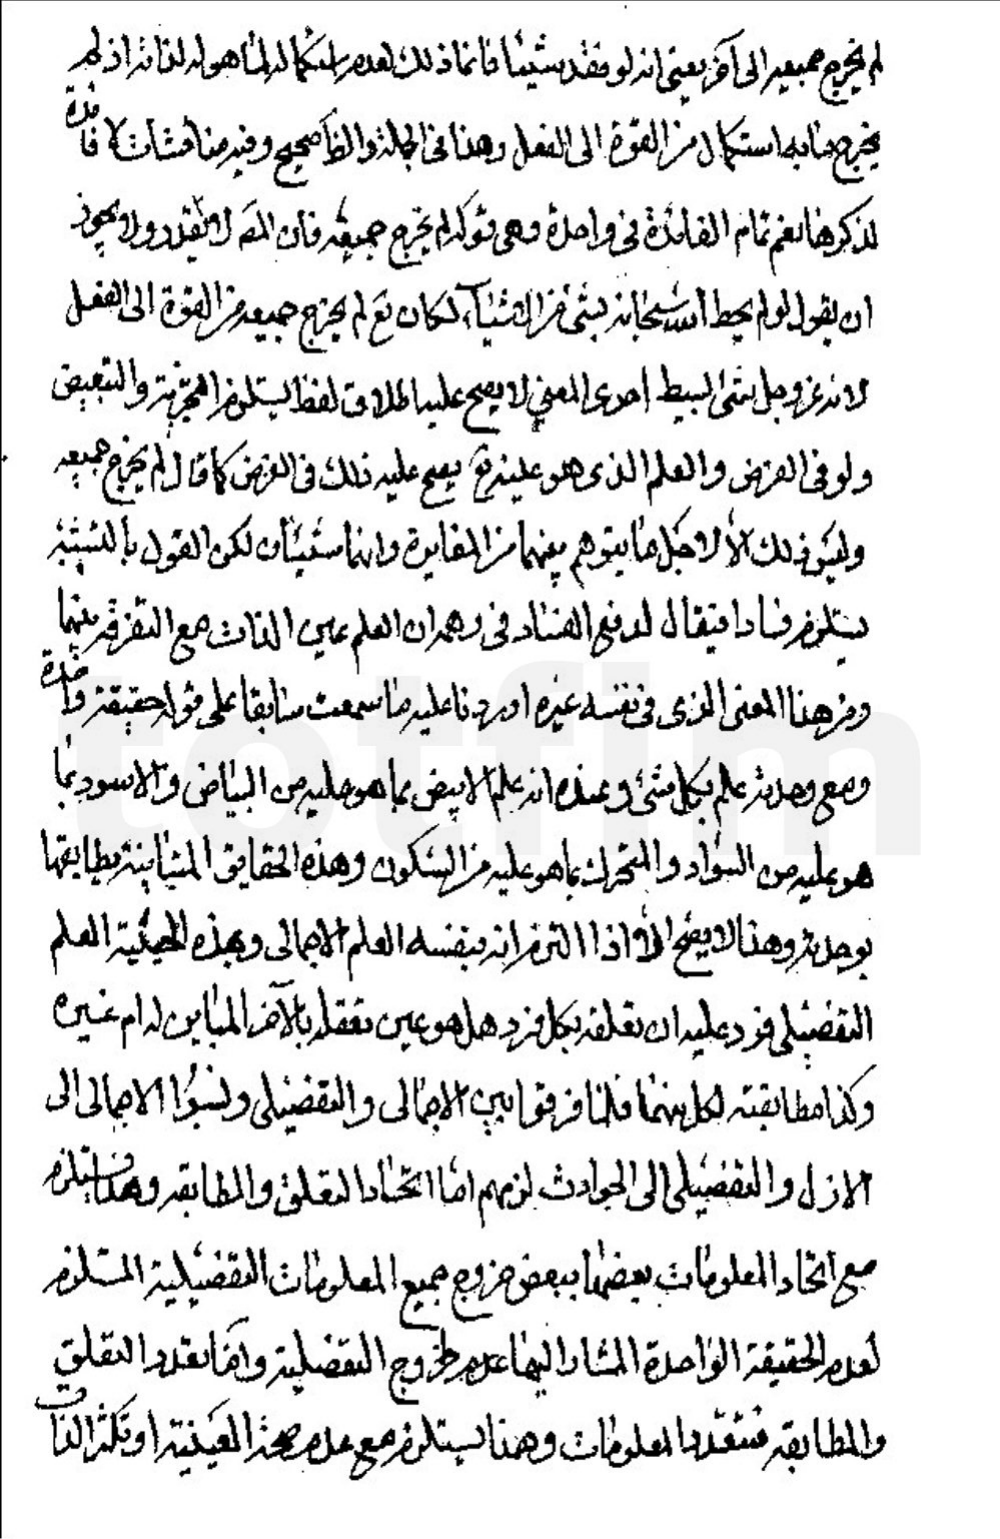 لم يخرج جميعه الى آخر يعني انه لو فقد شيئا فانما ذلك لعدم استكماله لما هو له لذاته اذ لم
يخرج ما به استكمال من القوة الى الفعل وهذا في الجملة والظ صحيح وفيه مناقشات لا فائدة
لذكرها نعم تمام الفائدة في واحدة وهي قوله لم يخرج جميعه فان المص لا يقدر ولا يجوز
ان يقول لو لم يحط الله سبحانه بشئ من الاشياء لكان تع لم يخرج جميعه من القوة الى الفعل
لانه عز وجل شئ بسيط احدى المعنى لا يصح عليه اطلاق لفظ يستلزم التجزية والتبعيض
ولو في الفرض والعلم الذي هو عينه تع يصح عليه ذلك في الفرض كما قال لم يخرج جميعه
وليس ذلك الا لاجل ما يتوهم بينهما من المغايرة وانهما شيئان لكن القول بالتثنية
يستلزم فسادا فيقال لدفع الفساد في وهم ان العلم عين الذات مع التفرقة بينهما
ومن هنا المعنى الذي في نفسه غيره اوردنا عليه ما سمعت سابقا على قوله حقيقة واحدة
ومع وحدته علم بكل شئ وعنده انه علم الابيض بما هو عليه من البياض والاسود بما
هو عليه من السواد والمتحرك بما هو عليه من السكون وهذه الحقايق المتباينة يطابقها
بوحدته وهذا لا يصح الا اذا التزم انه بنفسه العلم الاجمالى وبهذه الحيثية العلم
التفصيلى فورد عليه ان تعلقه بكل فرد هل هو عين تعقله بالآخر المباين له ام غيره
وكذا مطابقته لكل منهما فلما فرقوا بين الاجمالى والتفصيلى ونسبوا الاجمالى الى
الازل والتفصيلى الى الحوادث لزمهم اما اتحاد التعلق والمطابقه وهذا يستلزم
مع اتحاد المعلومات بعضها ببعض خروج جميع المعلومات التفصيلية المستلزم
لعدم الحقيقة الواحدة المشار اليها عدم خروج التفصيلية واما تعدد التعلق
والمطابقه فتتعدد المعلومات وهذا يستلزم مع عدم صحة العينية او تكثر الذات